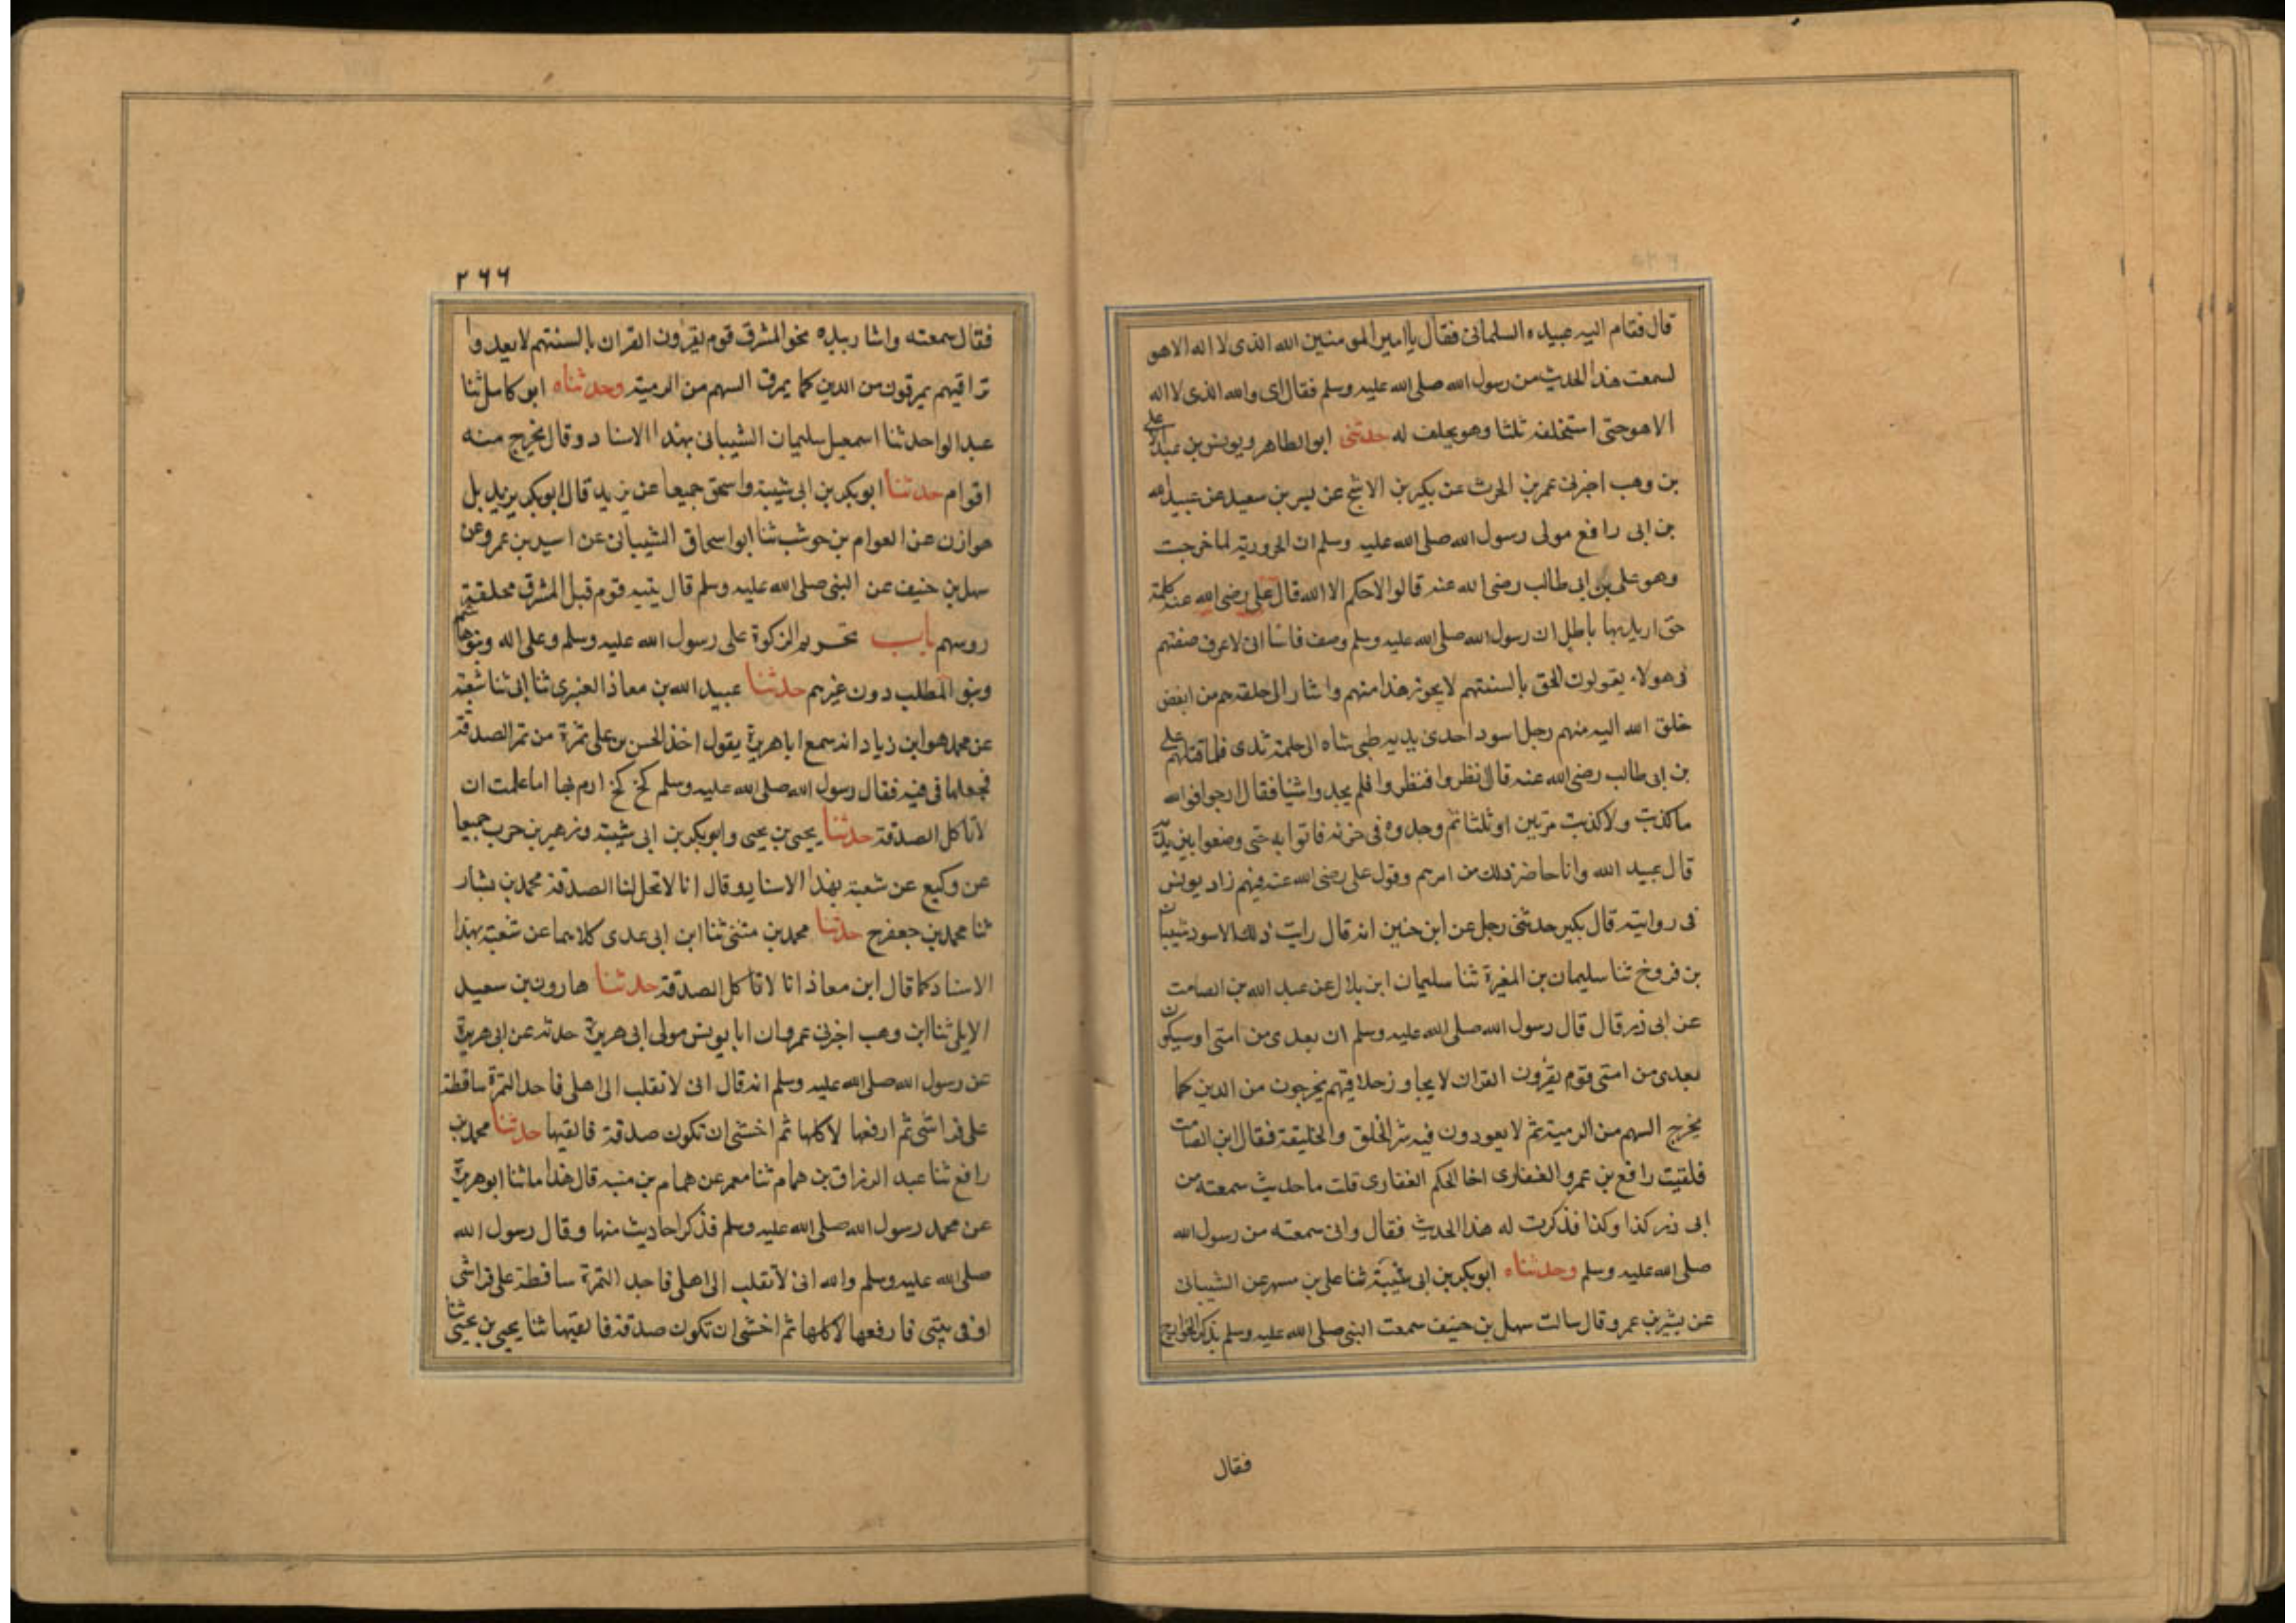 قال فقام اليه عبيده السلمانى فقال يا امير المومنين الله الذى لا اله الا هو
لسمعت هذا الحديث من رسول الله صلى الله عليه وسلم فقال اى والله الذى لا اله
الا هو حتى استحلفه ثلثا وهو يحلف له حدثنى ابو الطاهر ويونس بن عبد الاعلى
بن وهب اخبرنى عمر بن الحرث عن بكير بن الاشج عن بسر بن سعيد عن عبيد الله
بن ابى رافع مولى رسول الله صلى الله عليه وسلم ان الحرورية لما خرجت
وهو على بن ابى طالب رضى الله عنه قالوا لا حكم الا الله قال على رضى الله عنه كلمة
حق اريد بها باطل ان رسول الله صلى الله عليه وسلم وصف ناسا انى لاعرف صفتهم
فى هولاء يقولون الحق بالسنتهم لا يجوز هذا منهم واشار الى حلقه هم من ابغض
خلق الله اليه منهم رجل اسود احدى يديه طبى شاه او حلمة ثدى فلما قتلهم على
بن ابى طالب رضى الله عنه قال نظروا فنظروا فلم يجدوا شيا فقال ارجوا فوالله
ما كذبت ولا كذبت مرتين او ثلثا ثم وجدوه فى خربه فاتوا به حتى وضعوا بين يديه
قال عبيد الله وانا حاضر ذلك من امرهم وقول على رضى الله عنه فيهم زاد يونس
فى روايته قال بكير حدثنى رجل عن ابن حنين انه قال رايت ذلك الاسود شيبان
بن فروخ ثنا سليمان بن المغيرة ثنا سليمان ابن بلال عن عبد الله بن الصامت
عن ابى ذر قال قال رسول الله صلى الله عليه وسلم ان بعدى من امتى او سيكون
بعدى من امتى قوم يقرون القران لا يجاوز حلاقيهم يخرجون من الدين كما
يخرج السهم من الرمية ثم لا يعودون فيه شر الخلق والخليقة فقال ابن الصامت
فلقيت رافع بن عمرو الغفارى اخا الحكم الغفارى قلت ما حديث سمعته من
ابى ذر كذا وكذا فذكرت له هذا الحديث فقال وانى سمعته من رسول الله
صلى الله عليه وسلم وحدثناه ابو بكر بن ابى شيبة ثنا على بن مسهر عن الشيبانى
عن يسير بن عمرو قال سالت سهل بن حنيف سمعت النبى صلى الله عليه وسلم يذكر الخوارج
فقال
٢٦٦
فقال سمعته واشار بيده نحو المشرق قوم يقرون القران بالسنتهم لا يعدوا
تراقيهم يمرقون من الدين كما يمرق السهم من الرمية وحدثناه ابو كامل ثنا
عبد الواحد ثنا اسمعيل سليمان الشيبانى بهذا الاسناد وقال يخرج منه
اقوام حدثنا ابو بكر بن ابى شيبة واسحق جميعا عن يزيد قال ابو بكر يزيد بل
هوازن عن العوام بن حوشب ثنا ابو اسحاق الشيبانى عن اسير بن عمرو عن
سهل بن حنيف عن النبى صلى الله عليه وسلم قال يتيه قوم قبل المشرق محلقة
روسهم باب تحريم الزكوة على رسول الله عليه وسلم وعلى اله وبنوهاشم
وبنو المطلب دون غيرهم حدثنا عبيد الله بن معاذ العنبرى ثنا ابى ثنا شعبة
عن محمد هو ابن زياد انه سمع اباهريرة يقول اخذ الحسن بن على تمرة من تمر الصدقة
فجعلها فى فيه فقال رسول الله صلى الله عليه وسلم كخ كخ ارم بها اما علمت ان
لا ناكل الصدقة حدثنا يحيى بن يحيى وابو بكر بن ابى شيبة وزهير بن حرب جميعا
عن وكيع عن شعبة بهذا الاسناد وقال انا لا تحل لنا الصدقة محمد بن بشار
ثنا محمد بن جعفر ح حدثنا محمد بن مثنى ثنا ابن ابى عدى كلاهما عن شعبة بهذا
الاسناد كما قال ابن معاذ انا لا ناكل الصدقة حدثنا هارون بن سعيد
الايلى ثنا ابن وهب اخبرنى عمرو ان ابا يونس مولى ابى هريرة حدثه عن ابى هريرة
عن رسول الله صلى الله عليه وسلم انه قال انى لانقلب الى اهلى فاجد التمرة ساقطة
على فراشى ثم ارفعها لاكلها ثم اخشى ان تكون صدقة فالقيها حدثنا محمد بن
رافع ثنا عبد الرزاق بن همام ثنا معمر عن همام بن منبه قال هذا ما ثنا ابو هريرة
عن محمد رسول الله صلى الله عليه وسلم فذكر احاديث منها وقال رسول الله
صلى الله عليه وسلم والله انى لانقلب الى اهلى فاجد التمرة ساقطة على فراشى
او فى بيتى فارفعها لاكلها ثم اخشى ان تكون صدقة فالقيها ثنا يحيى بن يحيى ثنا